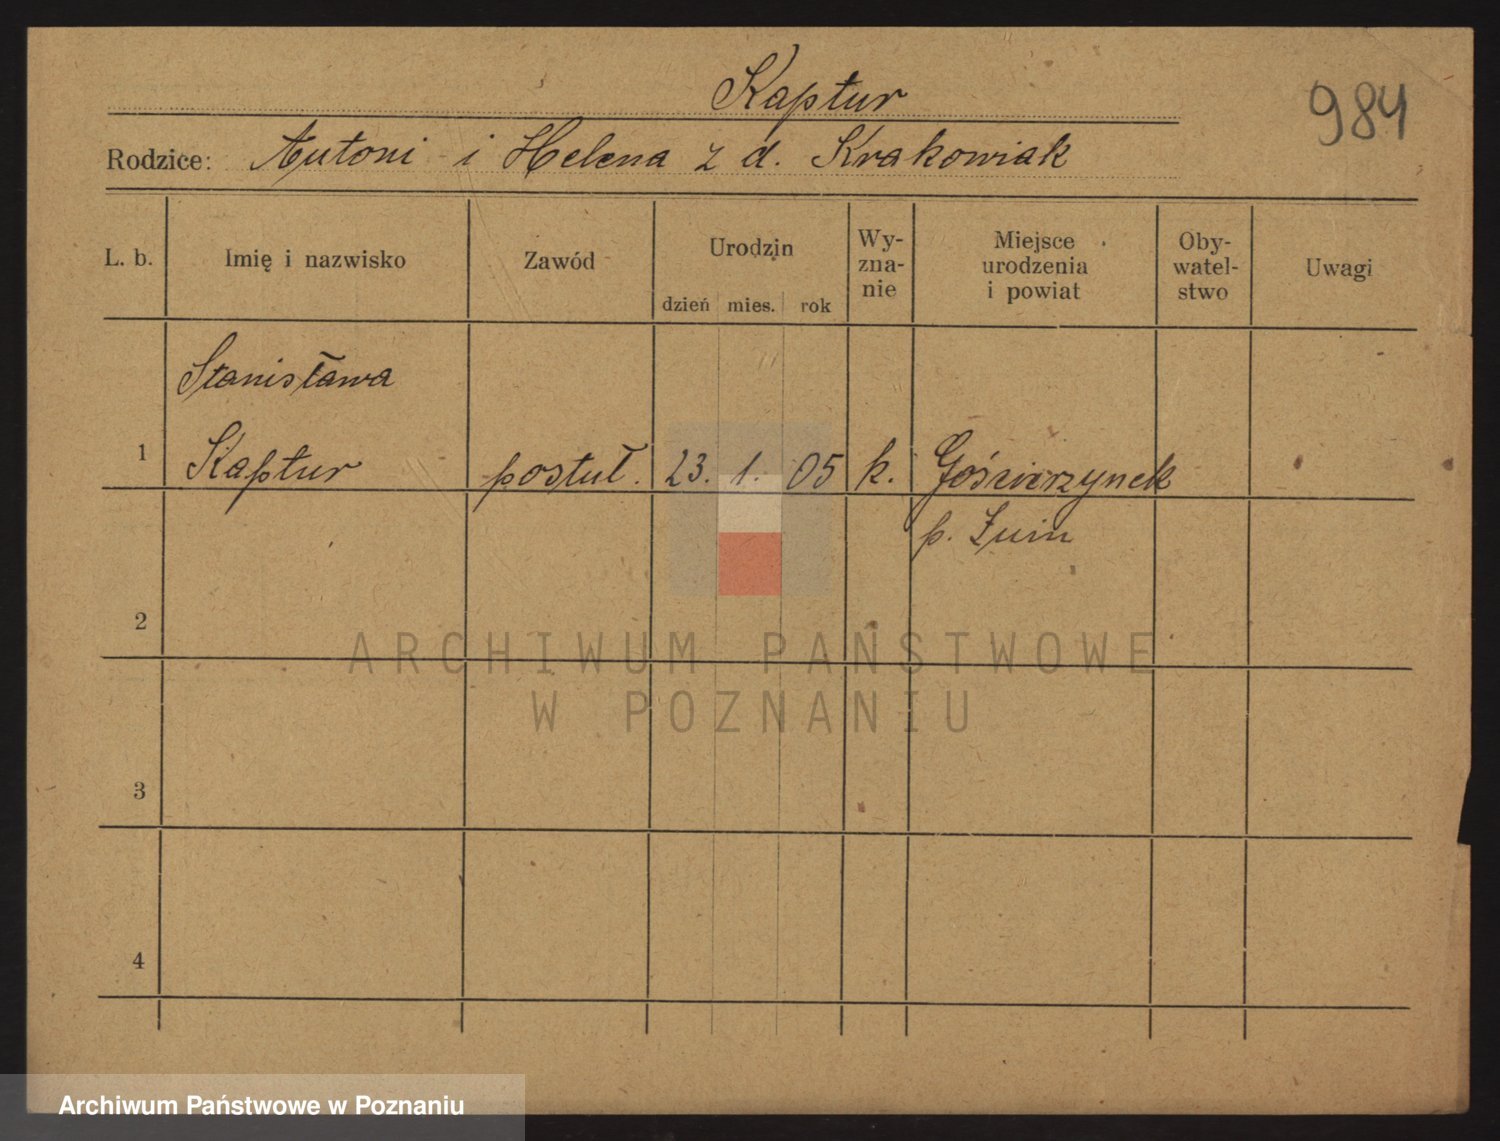 Kaptur
984
Rodzice: Antoni i Helena z d. Krakowiak
L. b. Imię i nazwisko Zawód Urodzin dzień mies. rok Wy-zna-nie Miejsce urodzenia i powiat Oby-watel-stwo Uwagi
Stanisława
1 Kaptur postul. 23. 1. 05 k. Gościerzynek
p. Żnin
2
ARCHIWUM PAŃSTWOWE
W POZNANIU
3
4
Archiwum Państwowe w Poznaniu